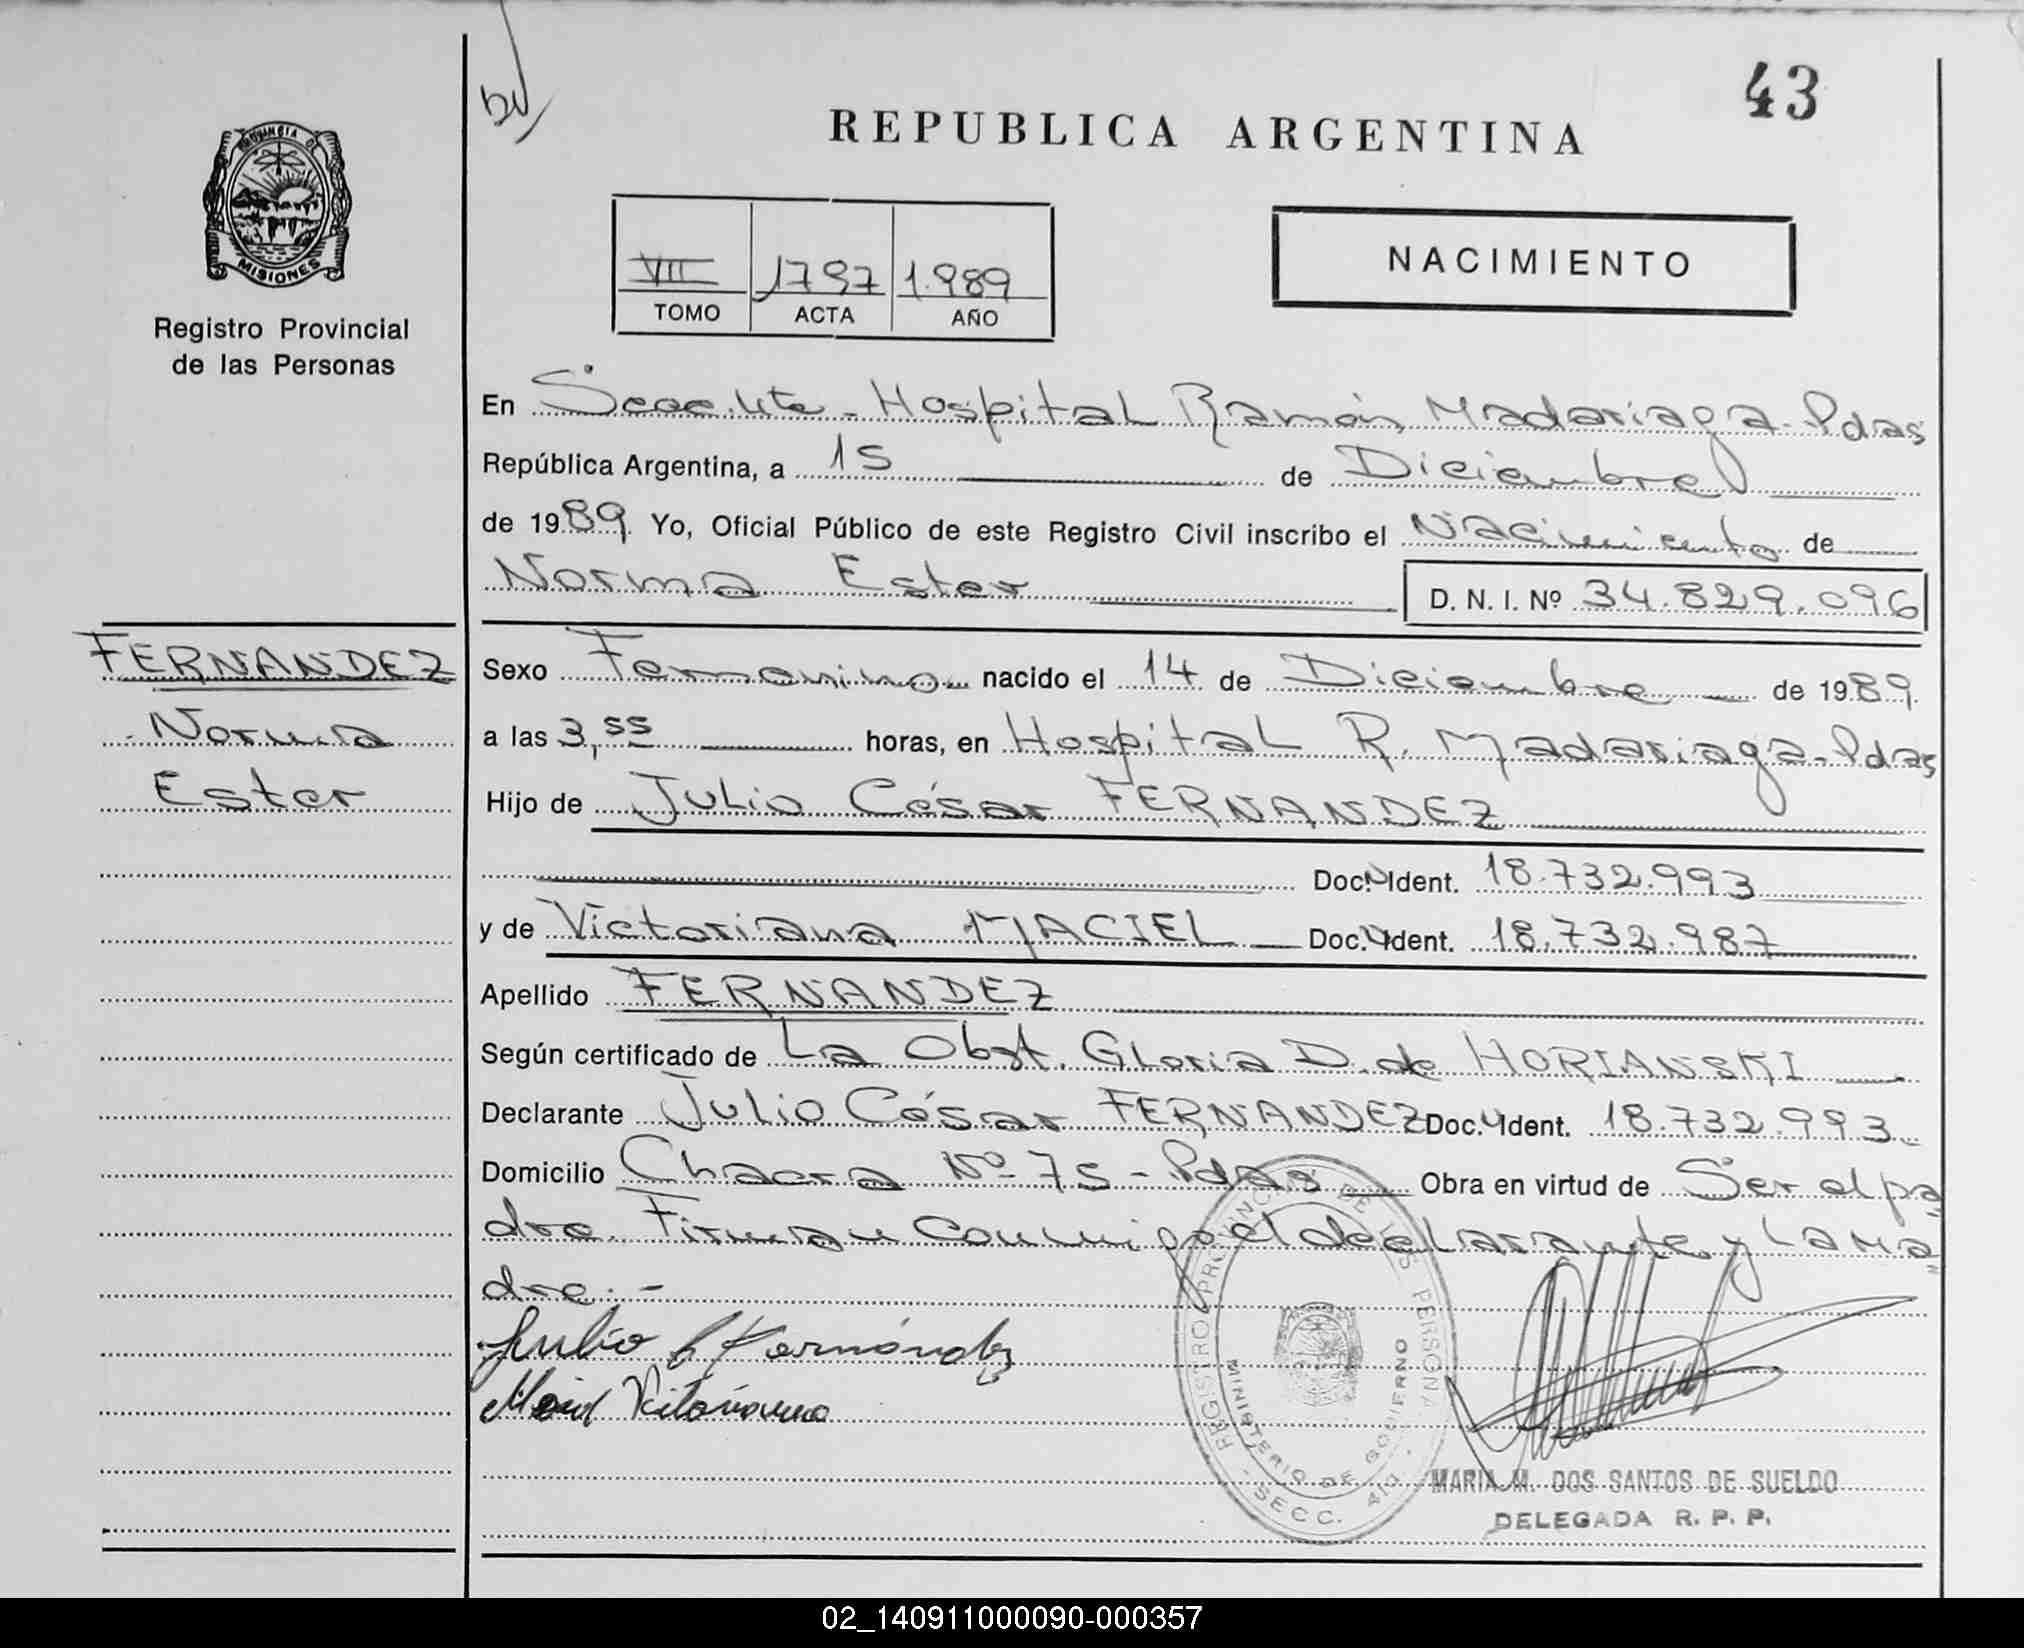 43
REPUBLICA ARGENTINA
PROVINCIA DE
MISIONES
Registro Provincial
de las Personas
VII 1797 1.989
TOMO ACTA AÑO
NACIMIENTO
En Secc. 4ta - Hospital Ramón Madariaga - Pdas
República Argentina, a 15 de Diciembre
de 1989. Yo, Oficial Público de este Registro Civil inscribo el Nacimiento de
Norma Ester D. N. I. Nº 34.829.096
FERNANDEZ
Norma
Ester
Sexo Femenino nacido el 14 de Diciembre de 1989.
a las 3,55 horas, en Hospital R. Madariaga - Pdas
Hijo de Julio César FERNANDEZ
Doc. Ident. 18.732.993
y de Victoriana MACIEL Doc. Ident. 18.732.987
Apellido FERNANDEZ
Según certificado de La Obst. Gloria D. de HORIANSKI
Declarante Julio César FERNANDEZ Doc. Ident. 18.732.993.-
Domicilio Chacra Nº 75 - Pdas Obra en virtud de Ser el pa
dre. Firman conmigo el declarante y la ma
dre. -
Julio C Fernández
Maciel Victoriana
REGISTRO PROVINCIAL DE LAS PERSONAS
MINISTERIO DE GOBIERNO
SECC. 4ta
MARIA M. DOS SANTOS DE SUELDO
DELEGADA R. P. P.
02_140911000090-000357